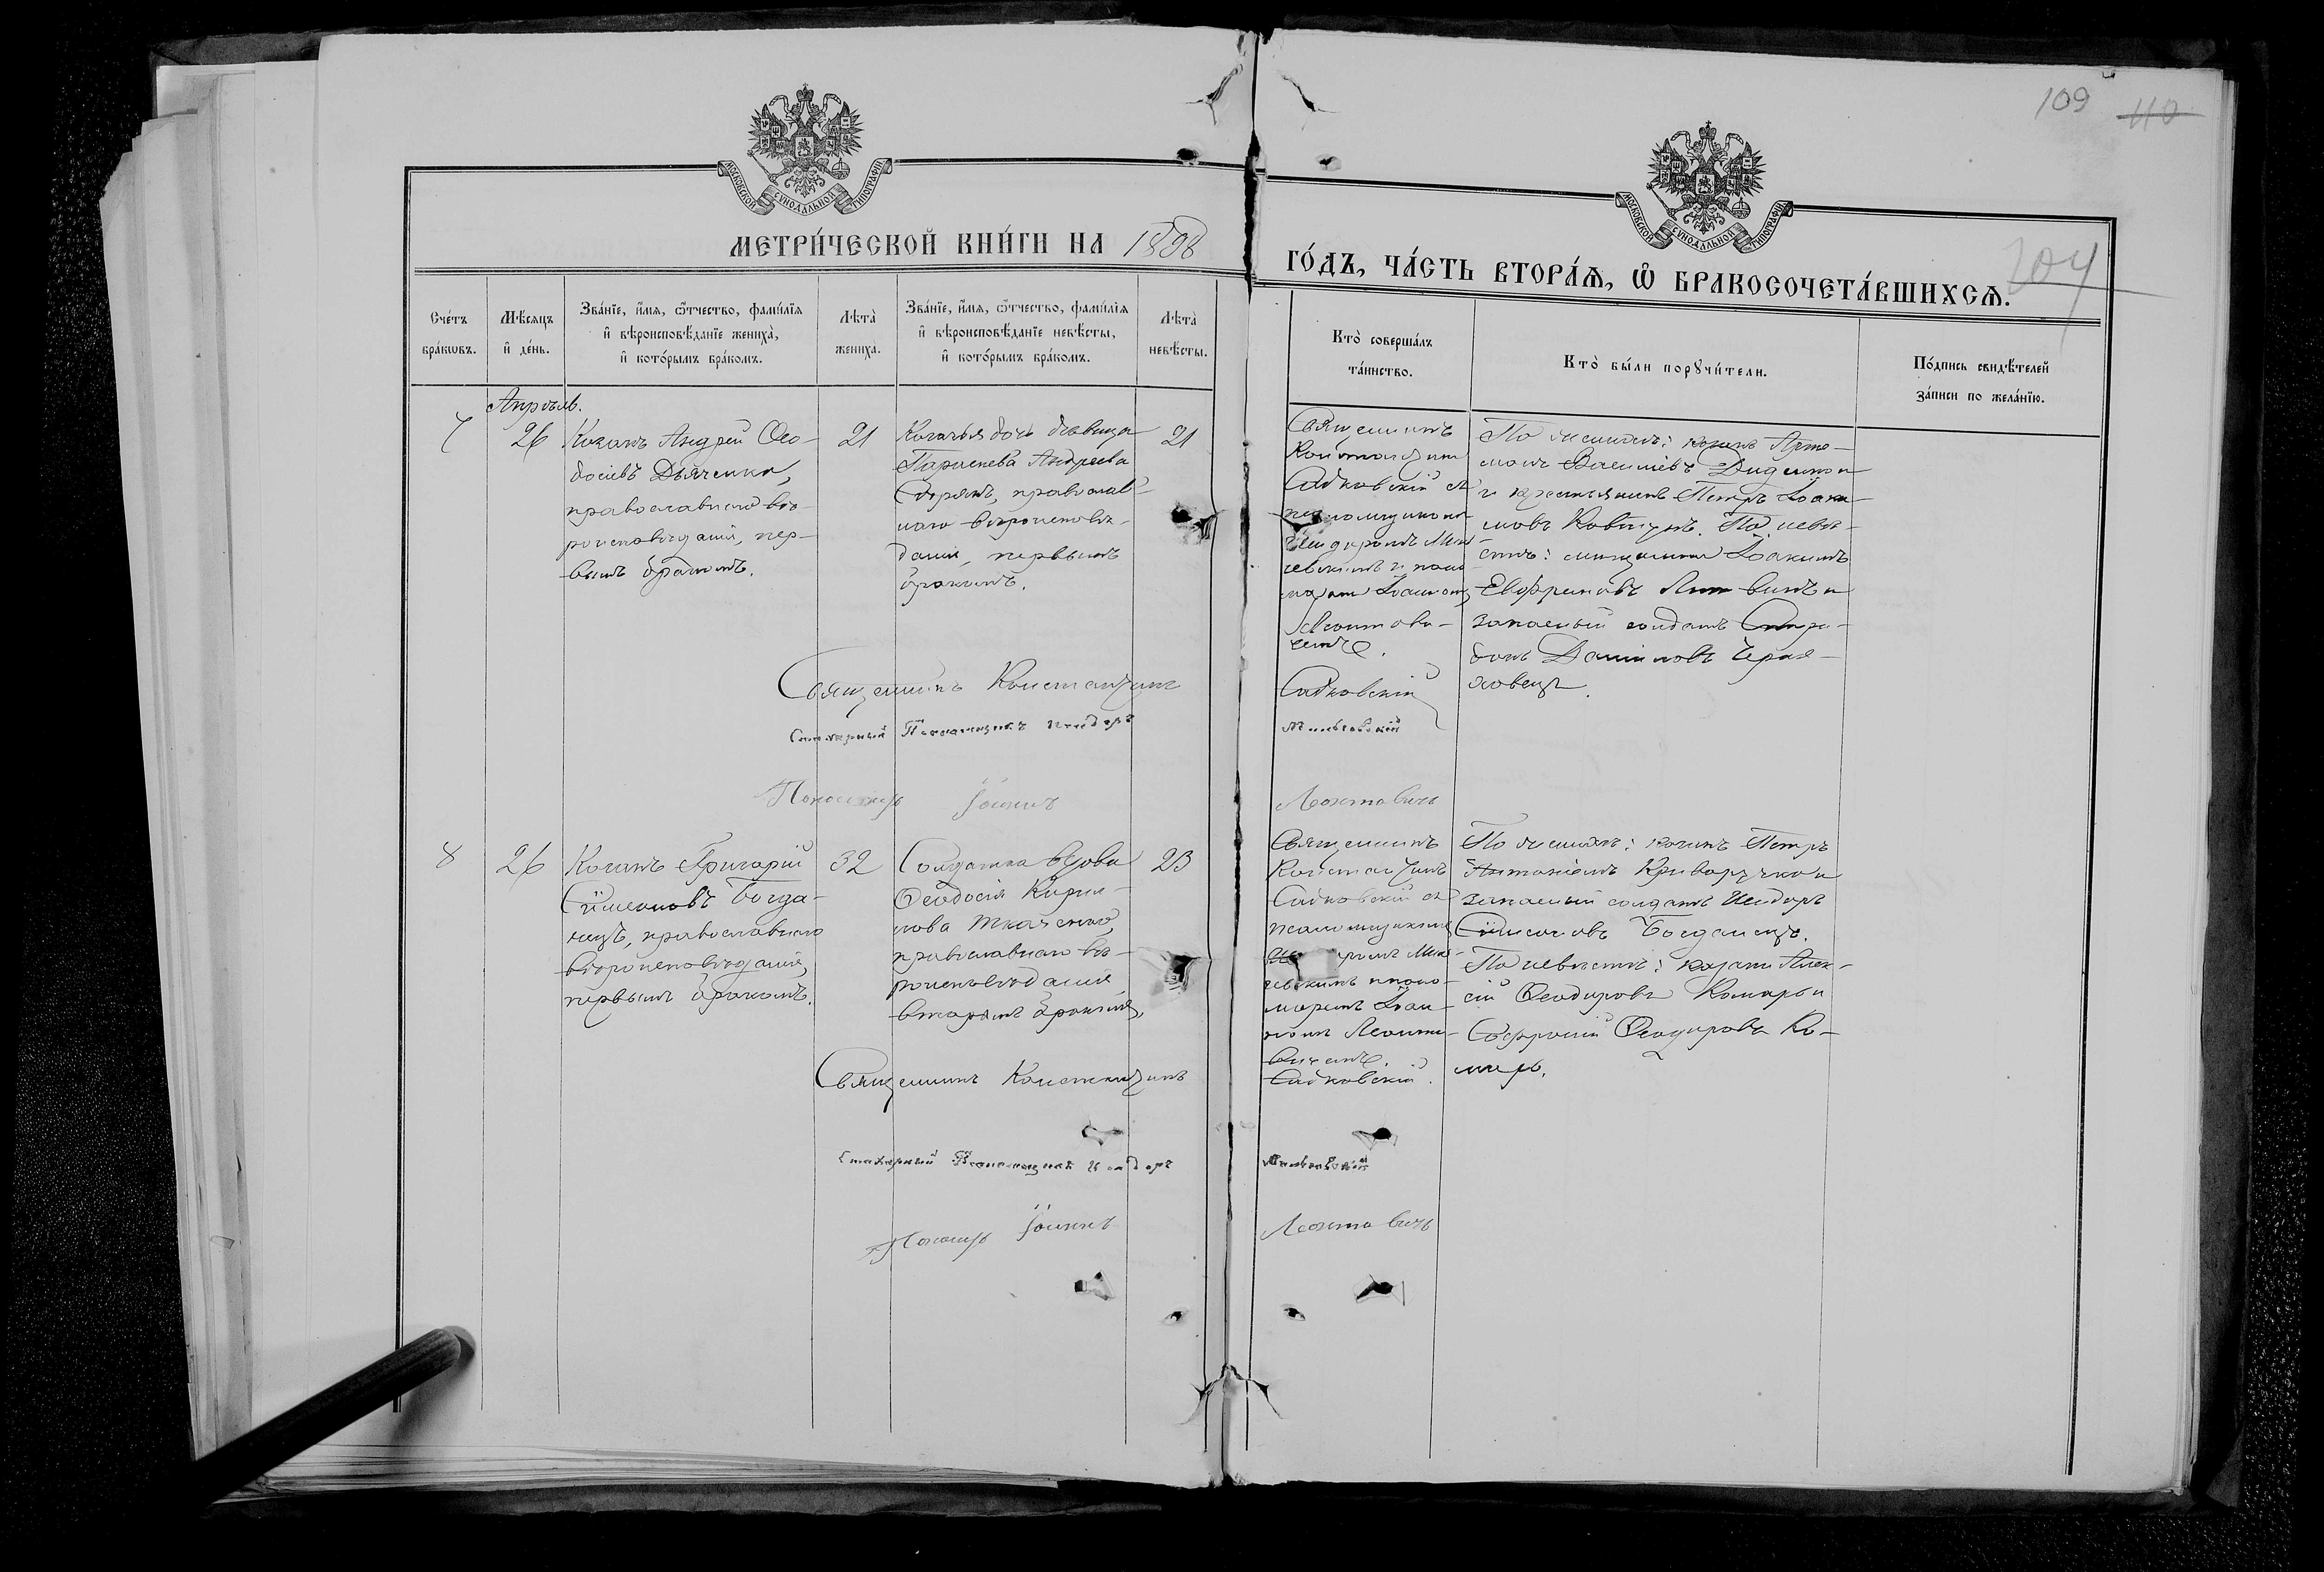 109 110
МОСКОВСКОЙ СУНОДАЛЬНОЙ ТИПОГРАФІИ
МОСКОВСКОЙ СУНОДАЛЬНОЙ ТИПОГРАФІИ
МЕТРИ́ЧЕСКОЙ КНИ́ГИ НА 1898
ГО́ДЪ, ЧА́СТЬ ВТОРА́Я, Ѿ БРАКОСОЧЕТА́ВШИХСЯ.
204
Сче́тъ
бра́кѡвъ.
Мѣ́сяцъ
и҆ де́нь.
Зва́нїе, и҆́мя, ѻ҆́тчество, фами́лїя
и҆ вѣроисповѣ́данїе жениха̀,
и҆ кото́рымъ бра́комъ.
Лѣта̀
жениха̀.
Зва́нїе, и҆́мя, ѻ҆́тчество, фами́лїя
и҆ вѣроисповѣ́данїе невѣ́сты,
и҆ кото́рымъ бра́комъ.
Лѣта̀
невѣ́сты.
Кто̀ соверша́лъ
та́инство.
Кто̀ бы́ли порꙋчи́тели.
По́дпись свидѣ́телей
за́писи по жела́нїю.
Апрѣль.
7
26
Козакъ Андрей Ѳео-
досіевъ Дьяченко,
православнаго вѣ-
роисповѣданія, пер-
вымъ бракомъ.
21
Козачья дочь дѣвица
Параскева Андреева
православ-
наго вѣроисповѣ-
данія, первымъ
бракомъ.
21
Священникъ
Константинъ
Садковскій съ
псаломщикомъ
Исидоромъ Миль-
чевскимъ и поно-
маремъ Іоанномъ
Леонтови-
чемъ.
По женихѣ: козакъ Арте-
монъ Васильевъ Диденко
и крестьянинъ Петръ Іоаки-
мовъ Ковтунъ. По невѣ-
стѣ: мѣщанинъ Іоакимъ
Евфремовъ Литвинъ и
запасный солдатъ Спири-
донъ Даниловъ Черня-
ховецъ.
Священникъ Константинъ Садковскій
Псаломщикъ Исидоръ Мильчевскій
Пономарь Іоаннъ Леонтовичъ
8
26
Козакъ Григорій
Симеоновъ Богда-
нецъ, православнаго
вѣроисповѣданія,
первымъ бракомъ.
32
Солдатка вдова
Ѳеодосія Кирил-
лова Ткаченко,
православнаго вѣ-
роисповѣданія
вторымъ бракомъ.
23
Священникъ
Константинъ
Садковскій съ
псаломщикомъ
Миль-
чевскимъ и поно-
маремъ Іоан-
номъ Леонто-
вичемъ.
По женихѣ: козакъ Петръ
Антоніевъ Криворучко и
запасный солдатъ Исидоръ
Симеоновъ Богданецъ.
По невѣстѣ: козаки Алек-
сій Ѳеодоровъ Комаръ и
Софроній Ѳеодоровъ Ко-
маръ.
Священникъ Константинъ Садковскій.
Псаломщикъ Исидоръ Мильчевскій
Пономарь Іоаннъ Леонтовичъ